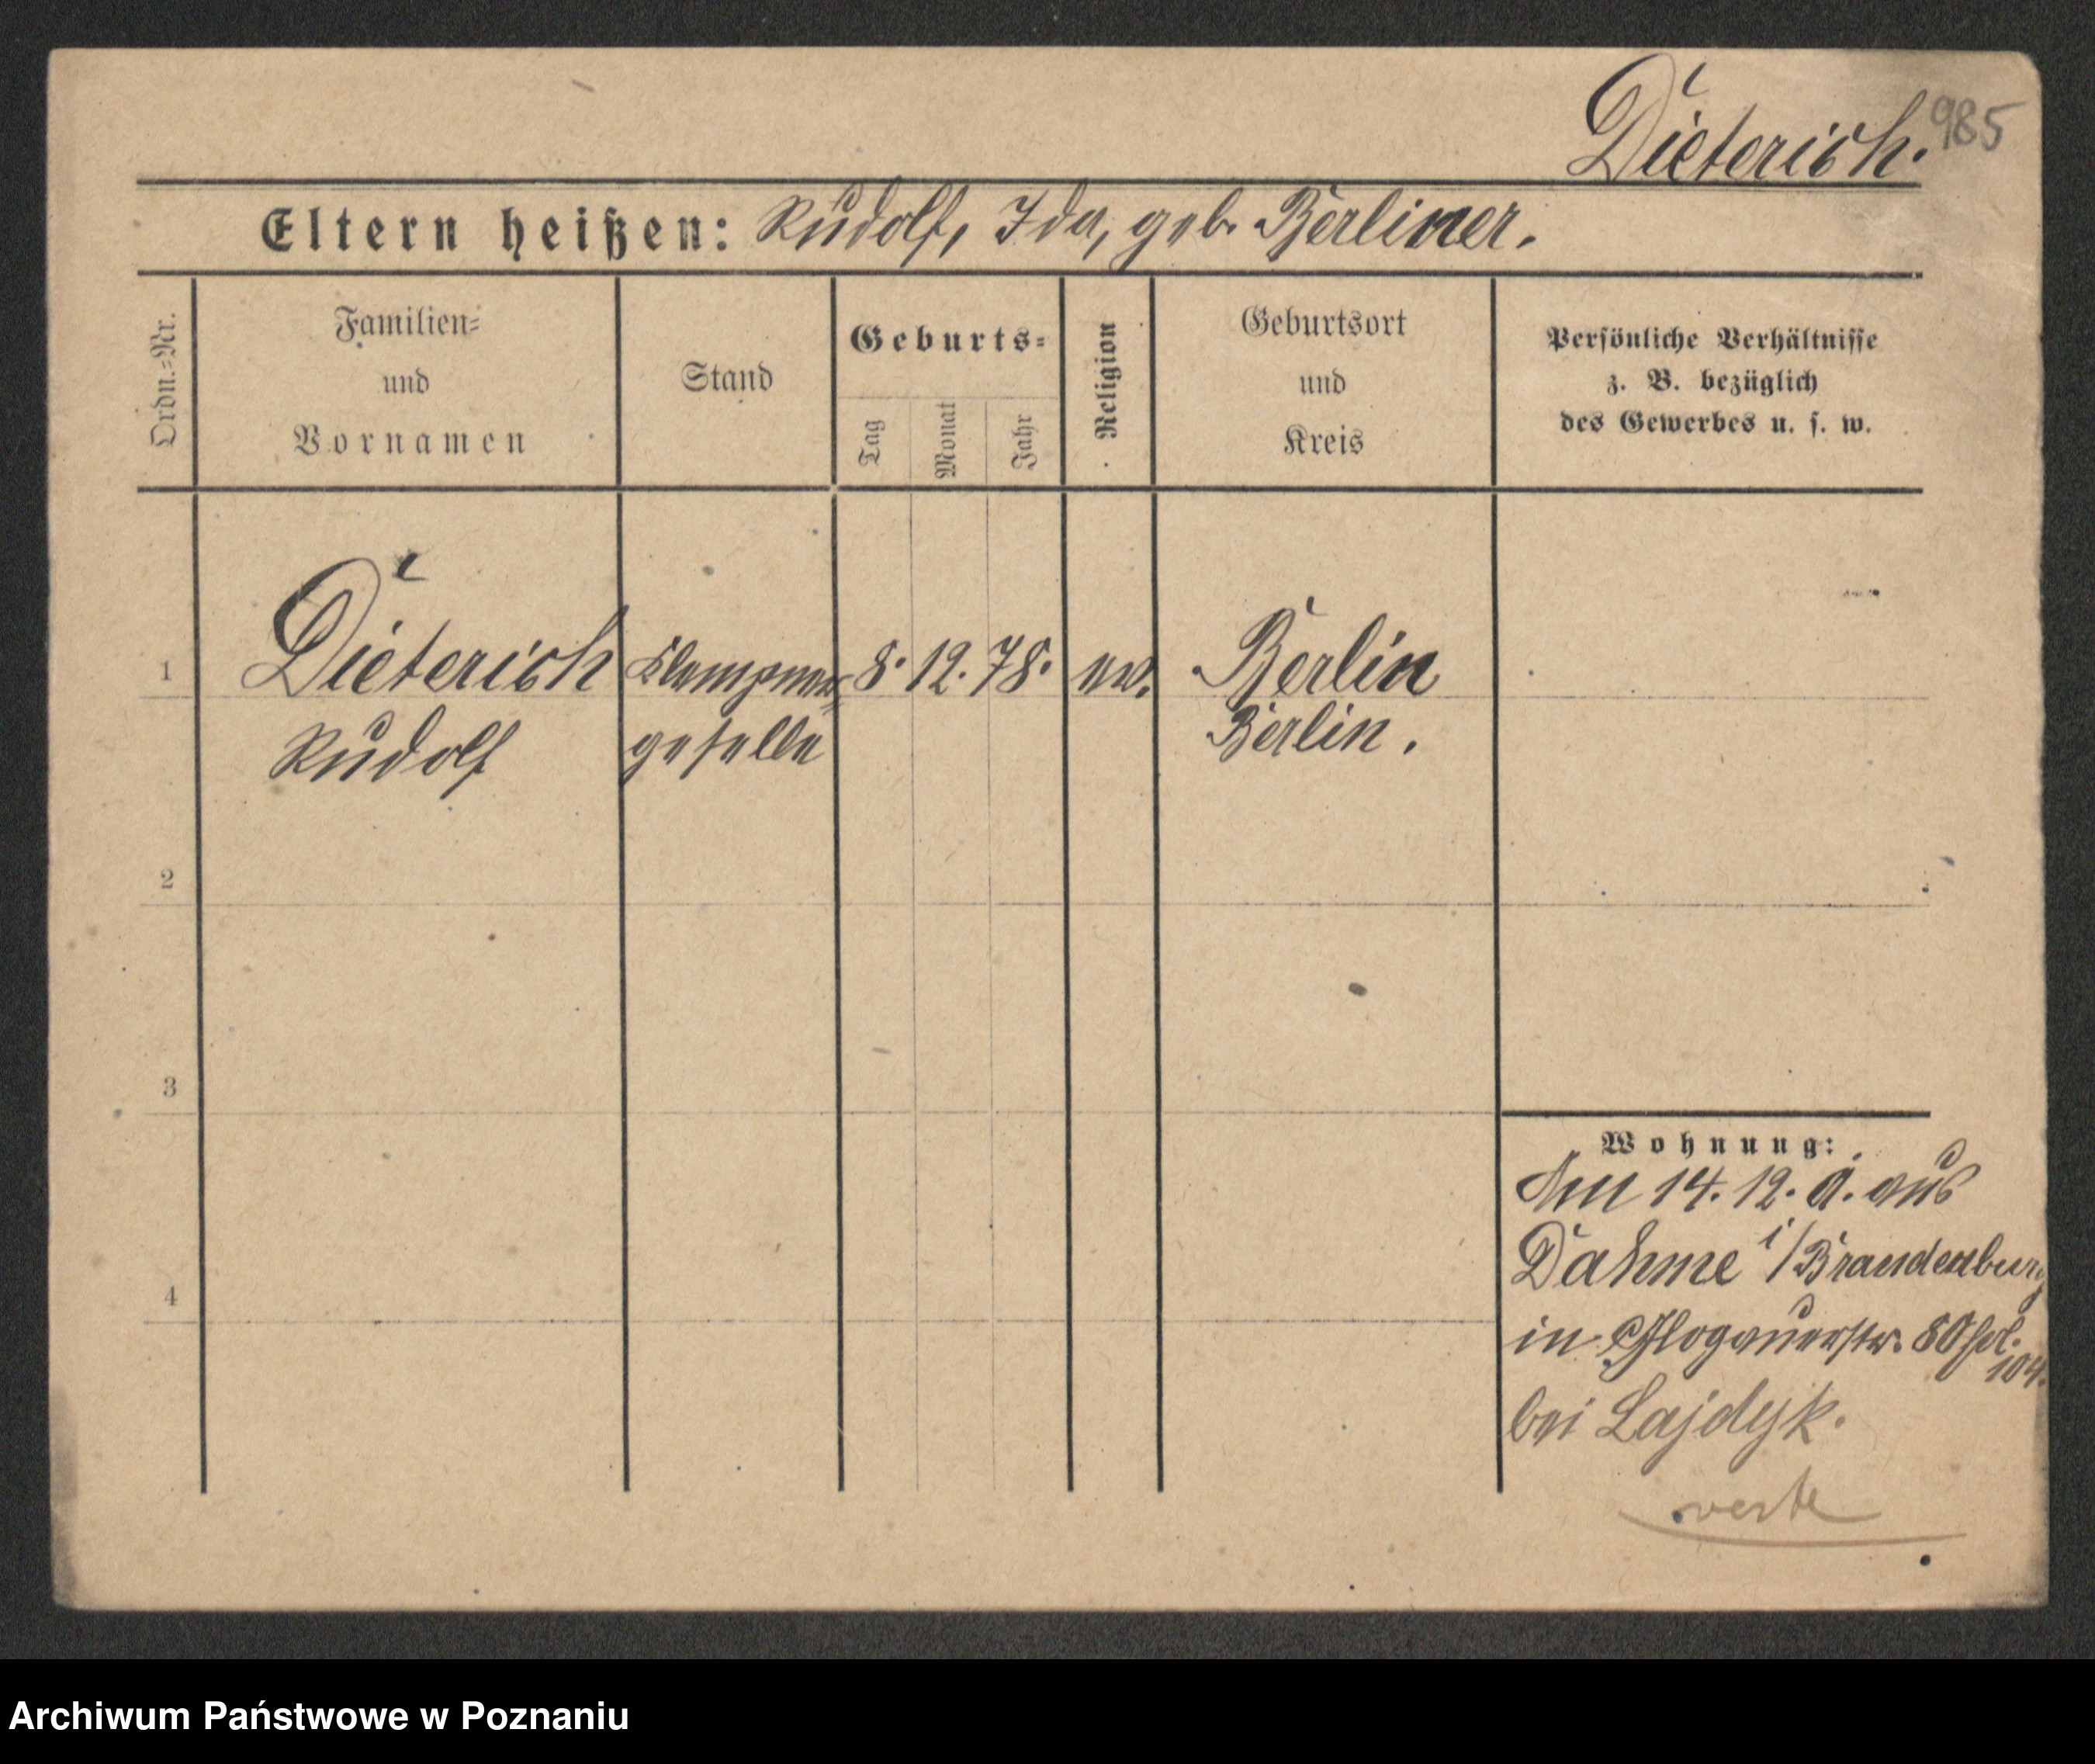 Dieterich. 985
Eltern heißen: Rudolf, Ida, geb. Berliner.
Ordn.=Nr.
Familien=
und
Vornamen
Stand
Geburts=
Tag
Monat
Jahr
Religion
Geburtsort
und
Kreis
Persönliche Verhältnisse
z. B. bezüglich
des Gewerbes u. s. w.
1 Dieterich Klempner= 8. 12. 78. ev. Berlin
Rudolf geselle Berlin.
2
3
4
Wohnung:
Am 14. 12. 0. aus
Dahme i/Brandenburg
in Glogauerstr. 80
104.
bei Lajdyk.
verte
Archiwum Państwowe w Poznaniu